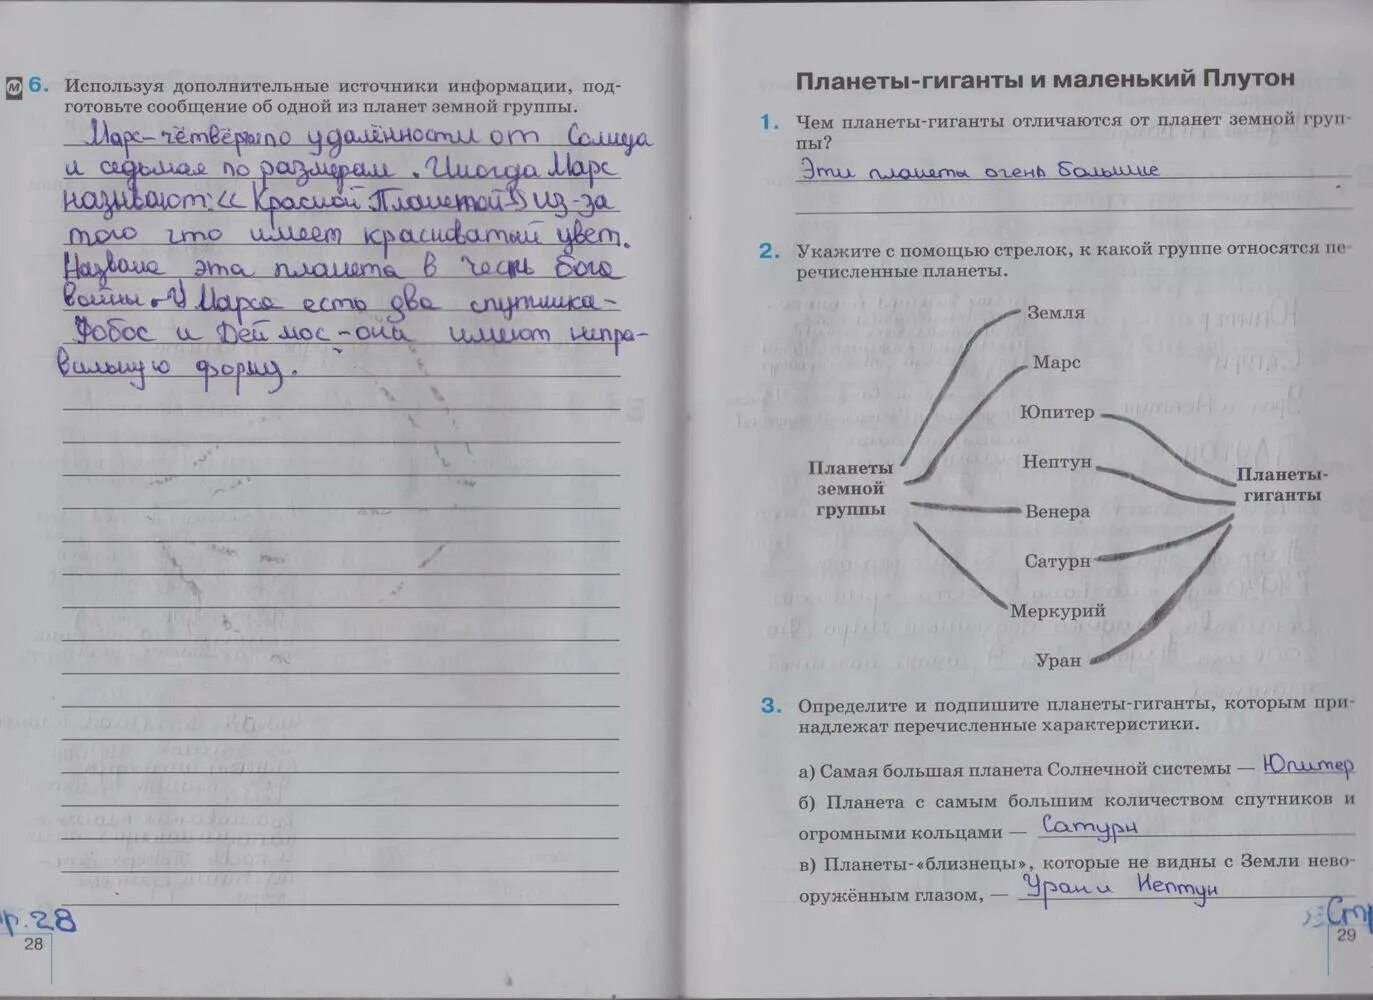 М 6. Используя дополнительные источники информации, под-
готовьте сообщение об одной из планет земной группы.
Марс-чётвёрыпо удалённости от Солнца
и седьмая по размерам. Иногда Марс
называют: «Красной Планетой» из-за
того что имеет красноватый цвет.
Названа эта планета в честь бога
войны. У Марса есть два спутника-
Фобос и Деймос-они имеют непра-
вильную форму.
р.28
28
Планеты-гиганты и маленький Плутон
1. Чем планеты-гиганты отличаются от планет земной груп-
пы?
Эти планеты очень большие
2. Укажите с помощью стрелок, к какой группе относятся пе-
речисленные планеты.
Земля
Марс
Юпитер
Нептун
Венера
Сатурн
Меркурий
Уран
Планеты
земной
группы
Планеты-
гиганты
3. Определите и подпишите планеты-гиганты, которым при-
надлежат перечисленные характеристики.
а) Самая большая планета Солнечной системы — Юпитер
б) Планета с самым большим количеством спутников и
огромными кольцами — Сатурн
в) Планеты-«близнецы», которые не видны с Земли нево-
оружённым глазом, — Уран и Нептун
Стр
29